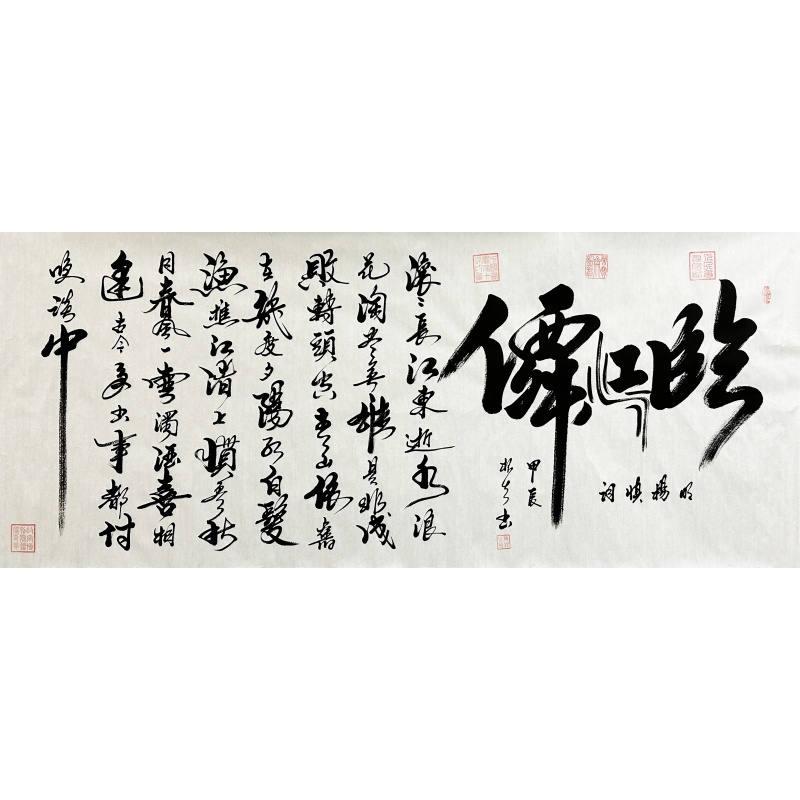 臨江僊
明楊慎詞
甲辰
书
滚〻長江東逝水浪
花淘尽英雄是非成
敗轉頭空青山依舊
在幾度夕陽红白髮
渔樵江渚上惯看秋
月春風一壶濁酒喜相
逢古今多少事都付
笑談中